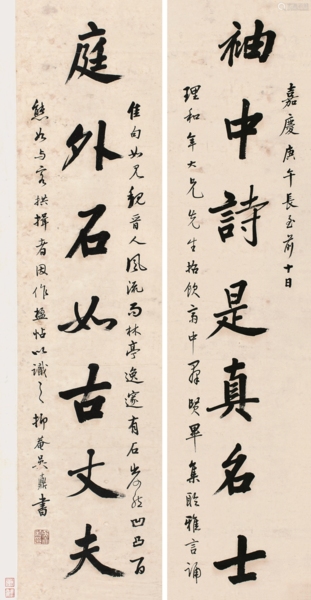 嘉慶庚午長至前十日
袖中詩是真名士
理和年大兄先生招飲齋中群賢畢集聆雅言誦
佳句如見魏晉人風流而林亭逸邃有石岩然凹凸百
庭外石如古丈夫
態如与客拱揖者因作楹帖以識之抑菴吳鼒書